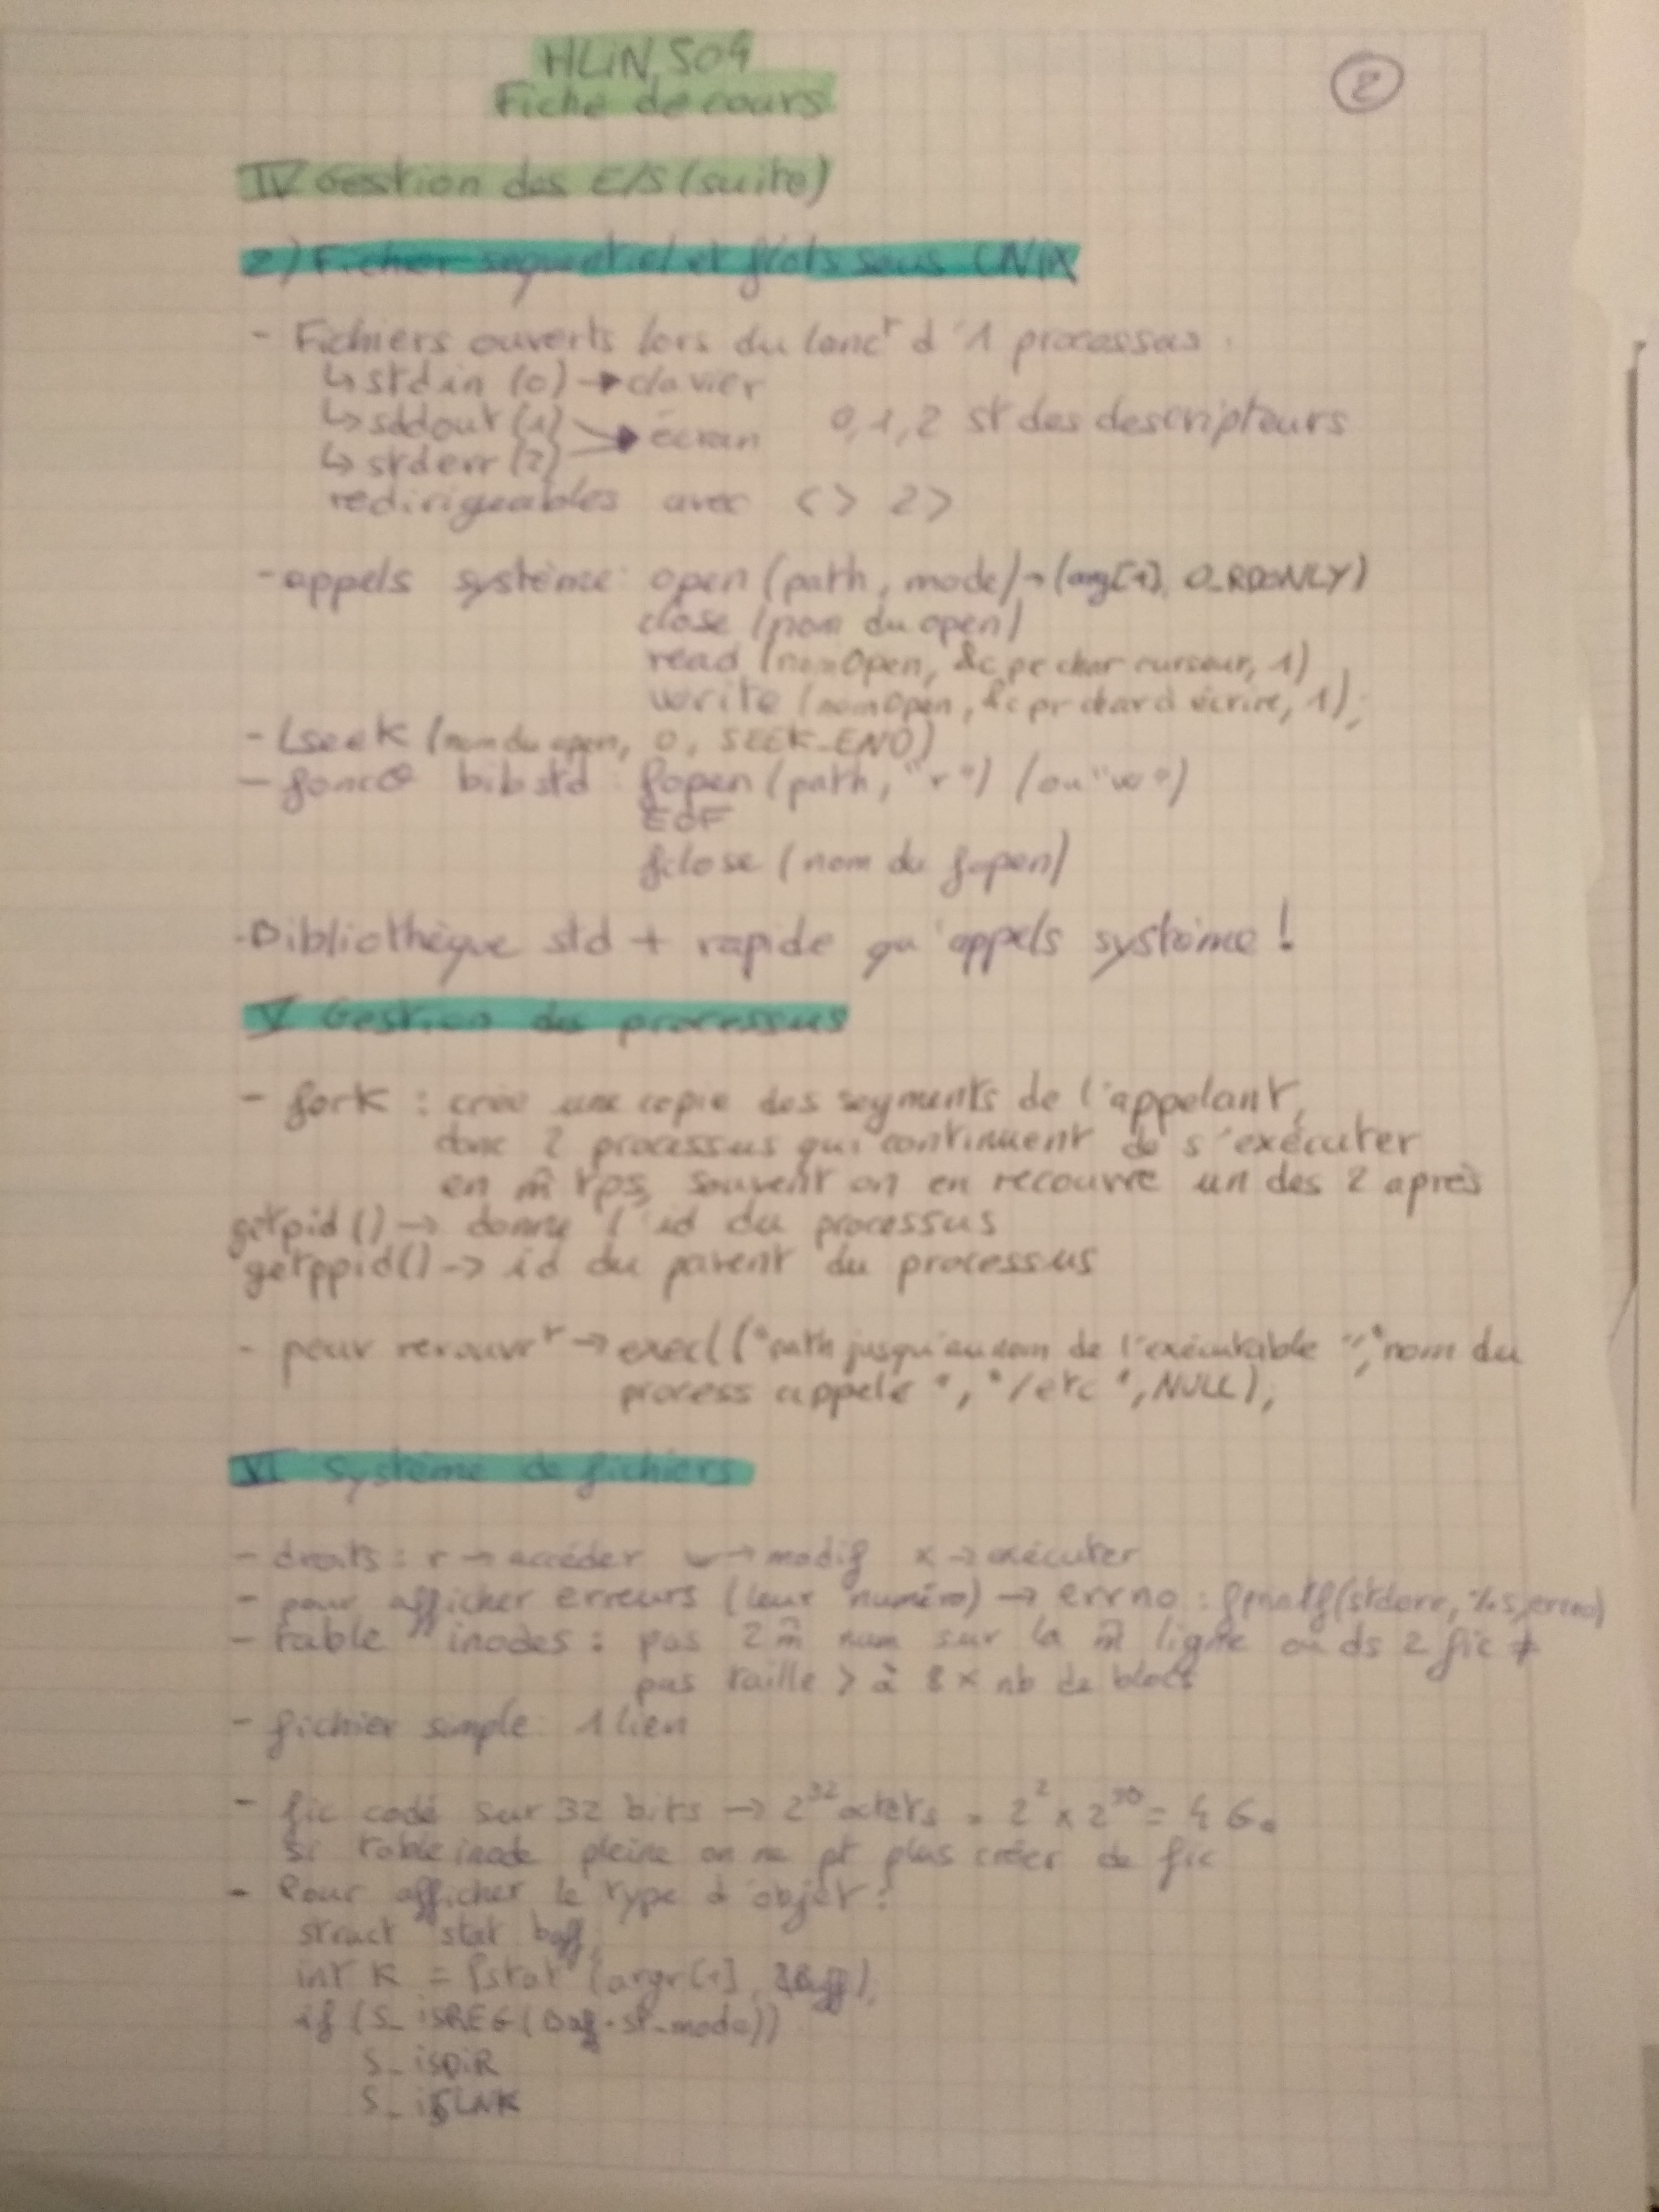 HLiN 504
Fiche de cours
2
IV Gestion des E/S (suite)
2) Fichier sequentiel et flots sous UNIX
- Fichiers ouverts lors du lancᵗ d'1 processus :
↳ stdin (0) → clavier
↳ stdout (1) → écran 0, 1, 2 st des descripteurs
↳ stderr (2)
redirigeables avec < > 2>
- appels système : open (path, mode) → (arg[1], O_RDONLY)
close (nom du open)
read (nomOpen, &c pr char curseur, 1)
write (nomOpen, &c pr char à écrire, 1);
- lseek (nom du open, 0, SEEK_END)
- foncᶿ bib std : fopen (path, "r") (ou "w")
EOF
fclose (nom du fopen)
- Bibliothèque std + rapide qu'appels système !
V Gestion des processus
- fork : crée une copie des segments de l'appelant,
donc 2 processus qui continuent de s'exécuter
en m̂ tps, souvent on en recouvre un des 2 après
getpid () → donne l'id du processus
getppid() → id du parent du processus
- pour recouvrᵗ → execl ("path jusqu'au nom de l'exécutable", "nom du
process appelé", "/etc", NULL);
VI Système de fichiers
- droits : r → accéder w → modif x → exécuter
- pour afficher erreurs (leur numéro) → errno : fprintf(stderr, %s, errno)
- table inodes : pas 2 m̂ num sur la m̂ ligne ou ds 2 fic ≠
pas taille > à 8 x nb de blocs
- fichier simple : 1 lien
- fic codé sur 32 bits → 2³² octets = 2² x 2³⁰ = 4 Go
Si table inode pleine on ne pt plus créer de fic
- Pour afficher le type d'objet :
struct stat buff;
int k = lstat (argv[1], &Buff);
if (S_iSREG(Buf.st_mode))
S_iSDiR
S_iSLNK